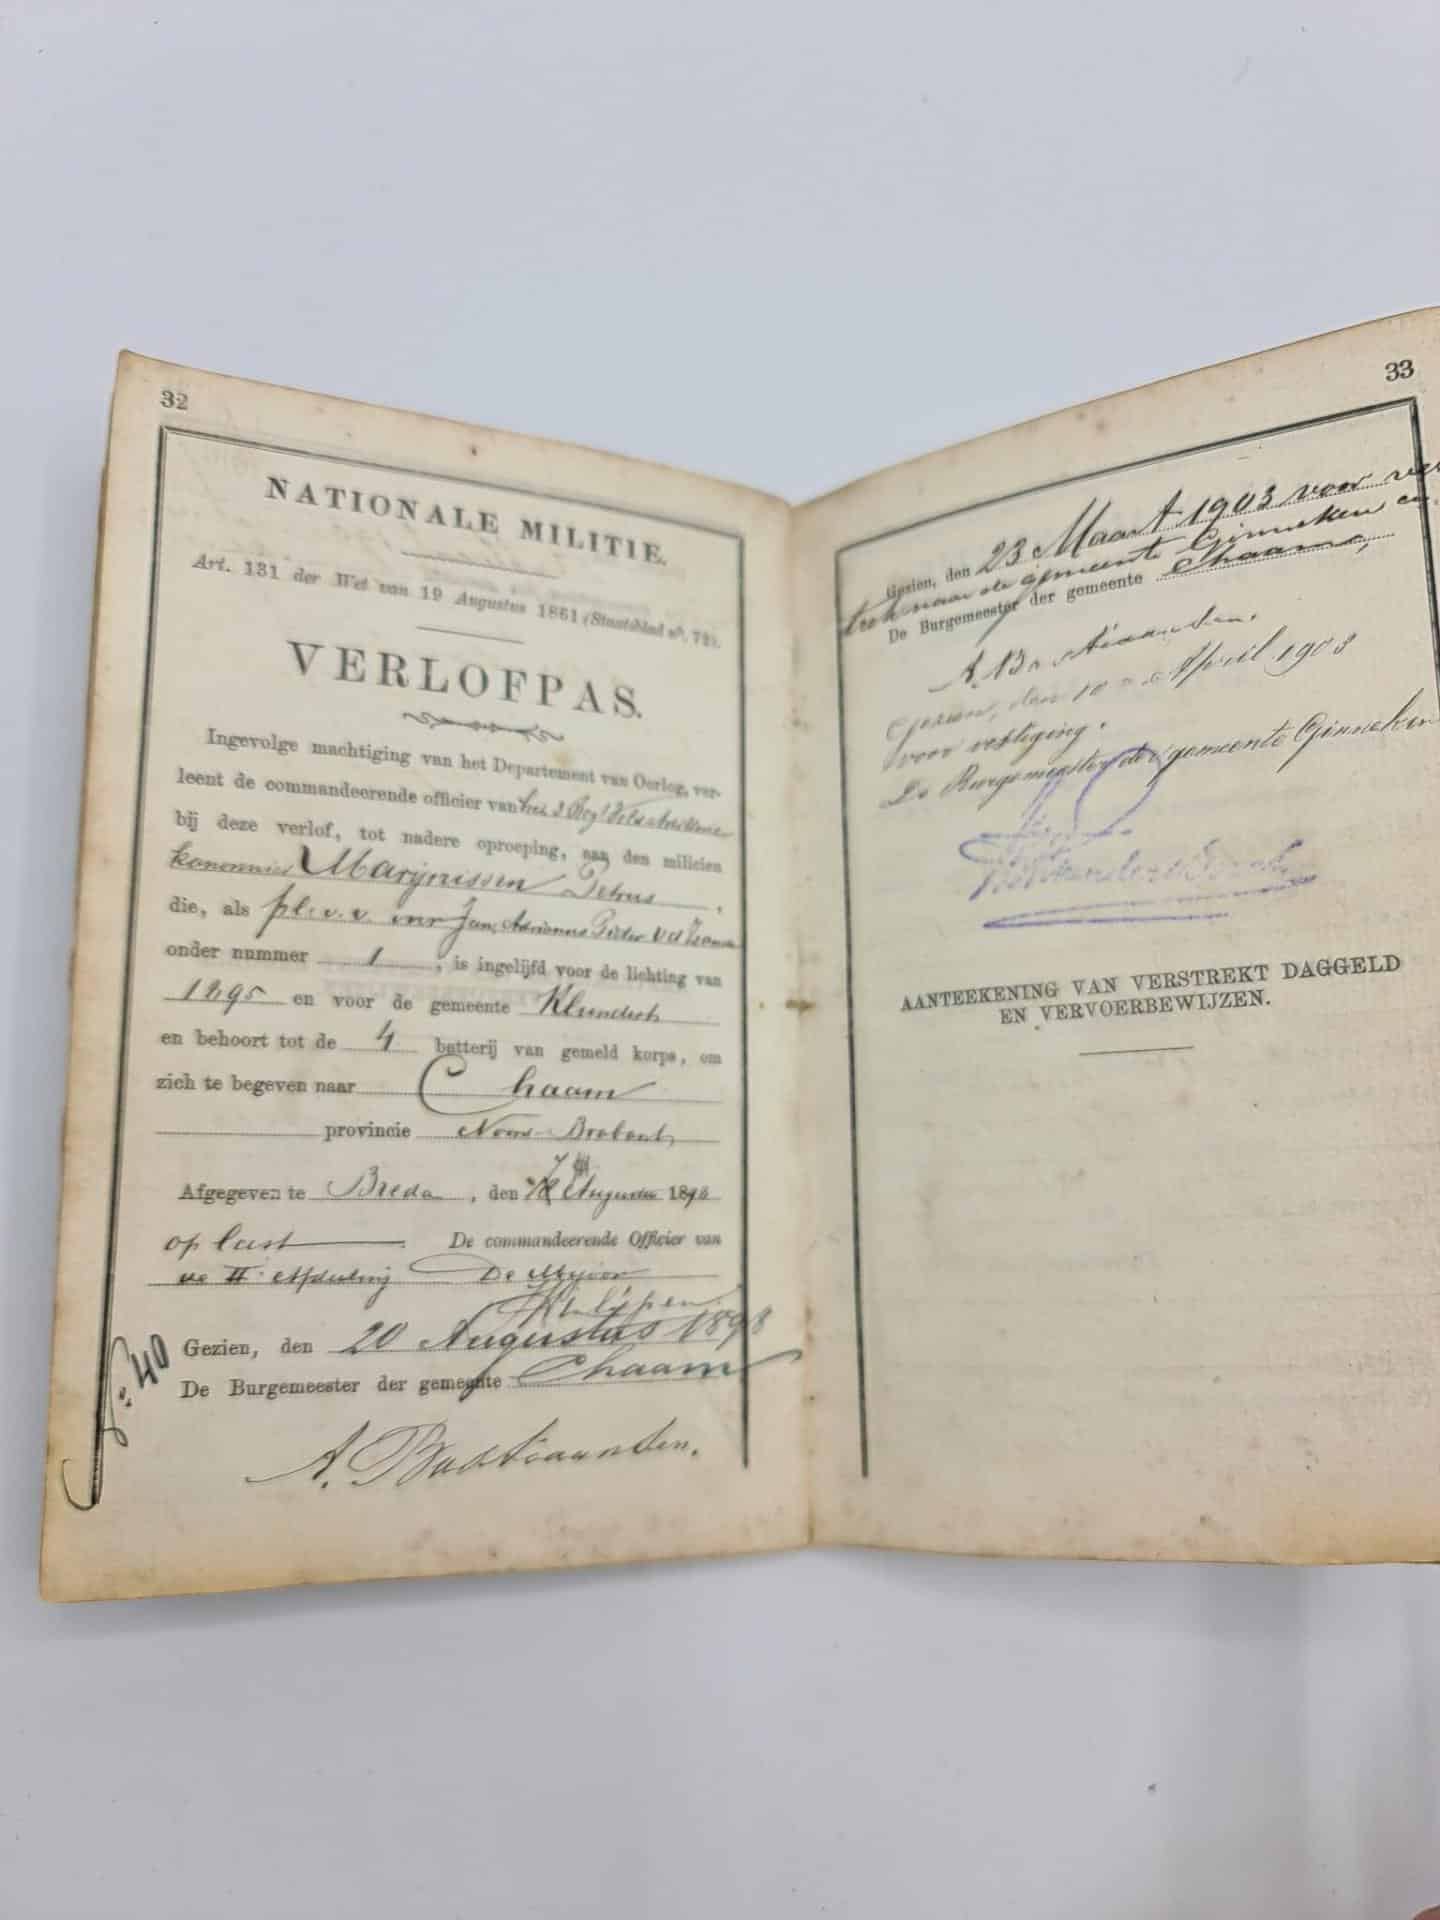 32
NATIONALE MILITIE.
Art. 131 der Wet van 19 Augustus 1861 (Staatsblad nº. 72).
VERLOFPAS.
Ingevolge machtiging van het Departement van Oorlog, ver-
leent de commandeerende officier van het 3 Regt Veld Artillerie
bij deze verlof, tot nadere oproeping, aan den milicien
kanonnier Marijnissen Petrus,
die, als pl.v.v. Jan, Adrianus Pieter vd
onder nummer 1, is ingelijfd voor de lichting van
1895 en voor de gemeente Klundert
en behoort tot de 4 batterij van gemeld korps, om
zich te begeven naar Chaam
provincie Noord-Brabant
Afgegeven te Breda, den Augustus 189
op last De commandeerende Officier van
de II Afdeeling De Majoor
Gezien, den 20 Augustus 1898
De Burgemeester der gemeente Chaam
No. 40
A. Bastiaansen.
33
Gezien, den 23 Maart 1903 voor ver
trek naar de gemeente Ginneken en
De Burgemeester der gemeente Chaam,
A. Bastiaansen.
Gezien, den 10 April 1903
voor vestiging.
De Burgemeester der gemeente Ginneken
AANTEEKENING VAN VERSTREKT DAGGELD
EN VERVOERBEWIJZEN.